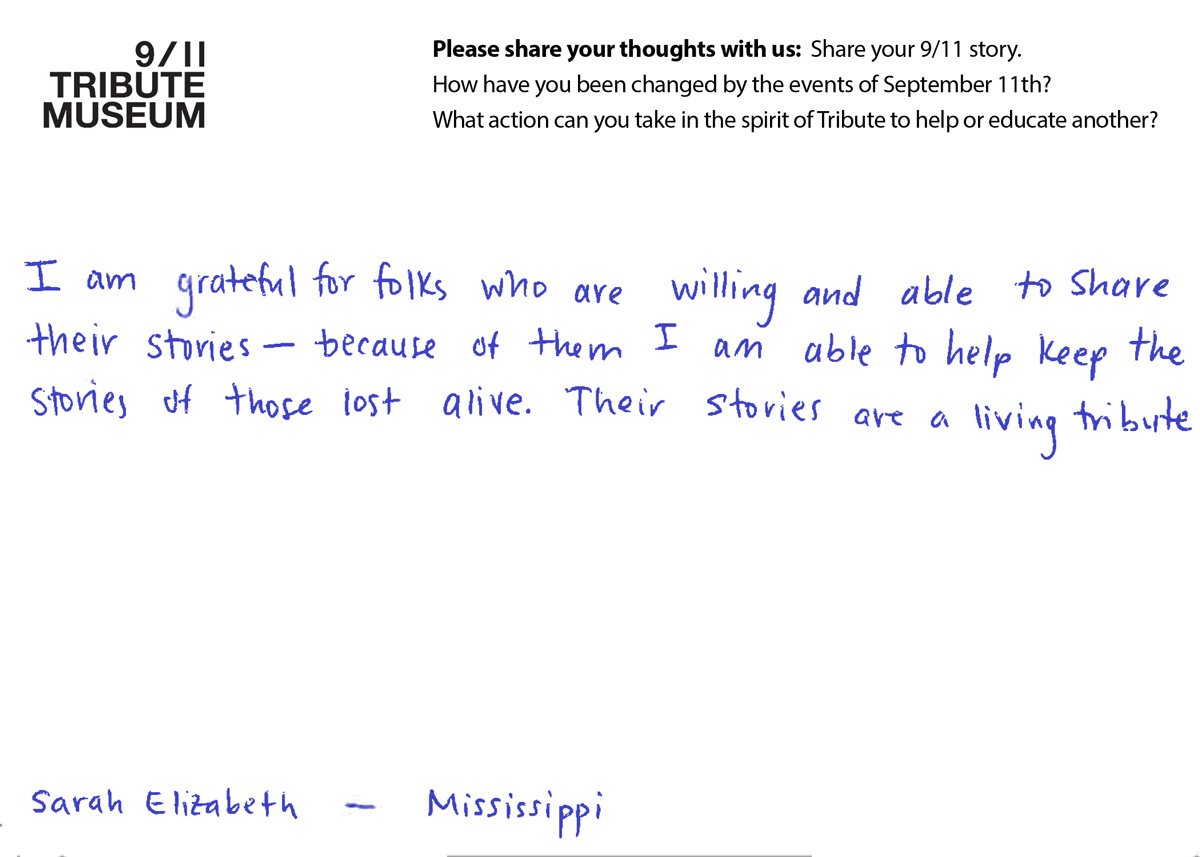 9/11
TRIBUTE
MUSEUM
Please share your thoughts with us: Share your 9/11 story.
How have you been changed by the events of September 11th?
What action can you take in the spirit of Tribute to help or educate another?
I am grateful for folks who are willing and able to share
their stories — because of them I am able to help keep the
stories of those lost alive. Their stories are a living tribute
Sarah Elizabeth — Mississippi